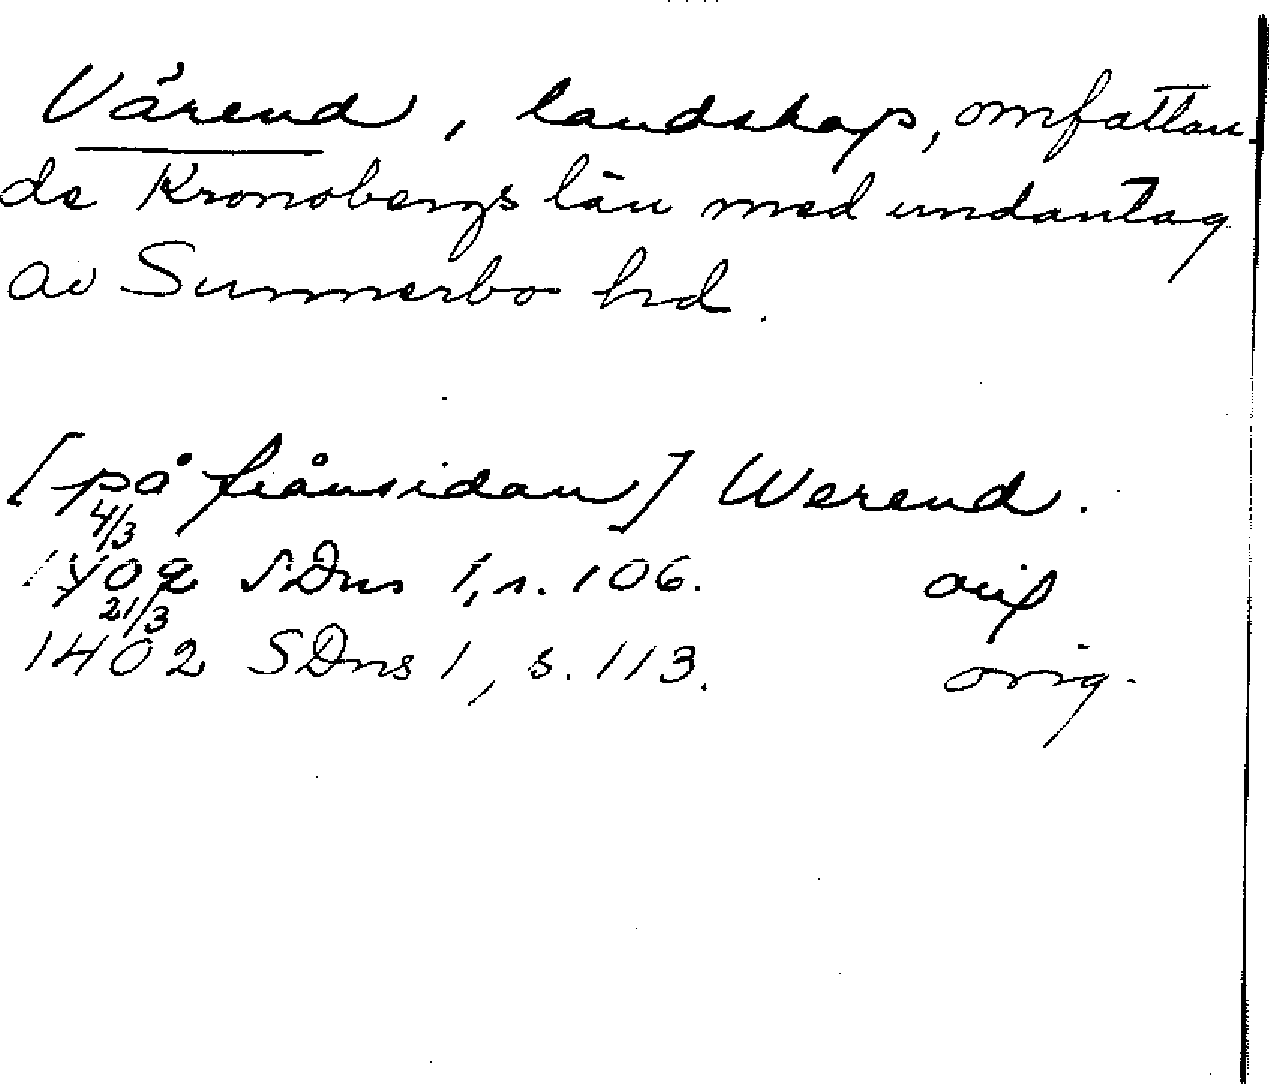 Värend, landskap, omfattan
de Kronobergs län med undantag
av Sunnerbo hd.
[på frånsidan] Werend.
4/3
1402 SDns 1, s. 106. orig
21/3
1402 SDns 1, s. 113. orig.